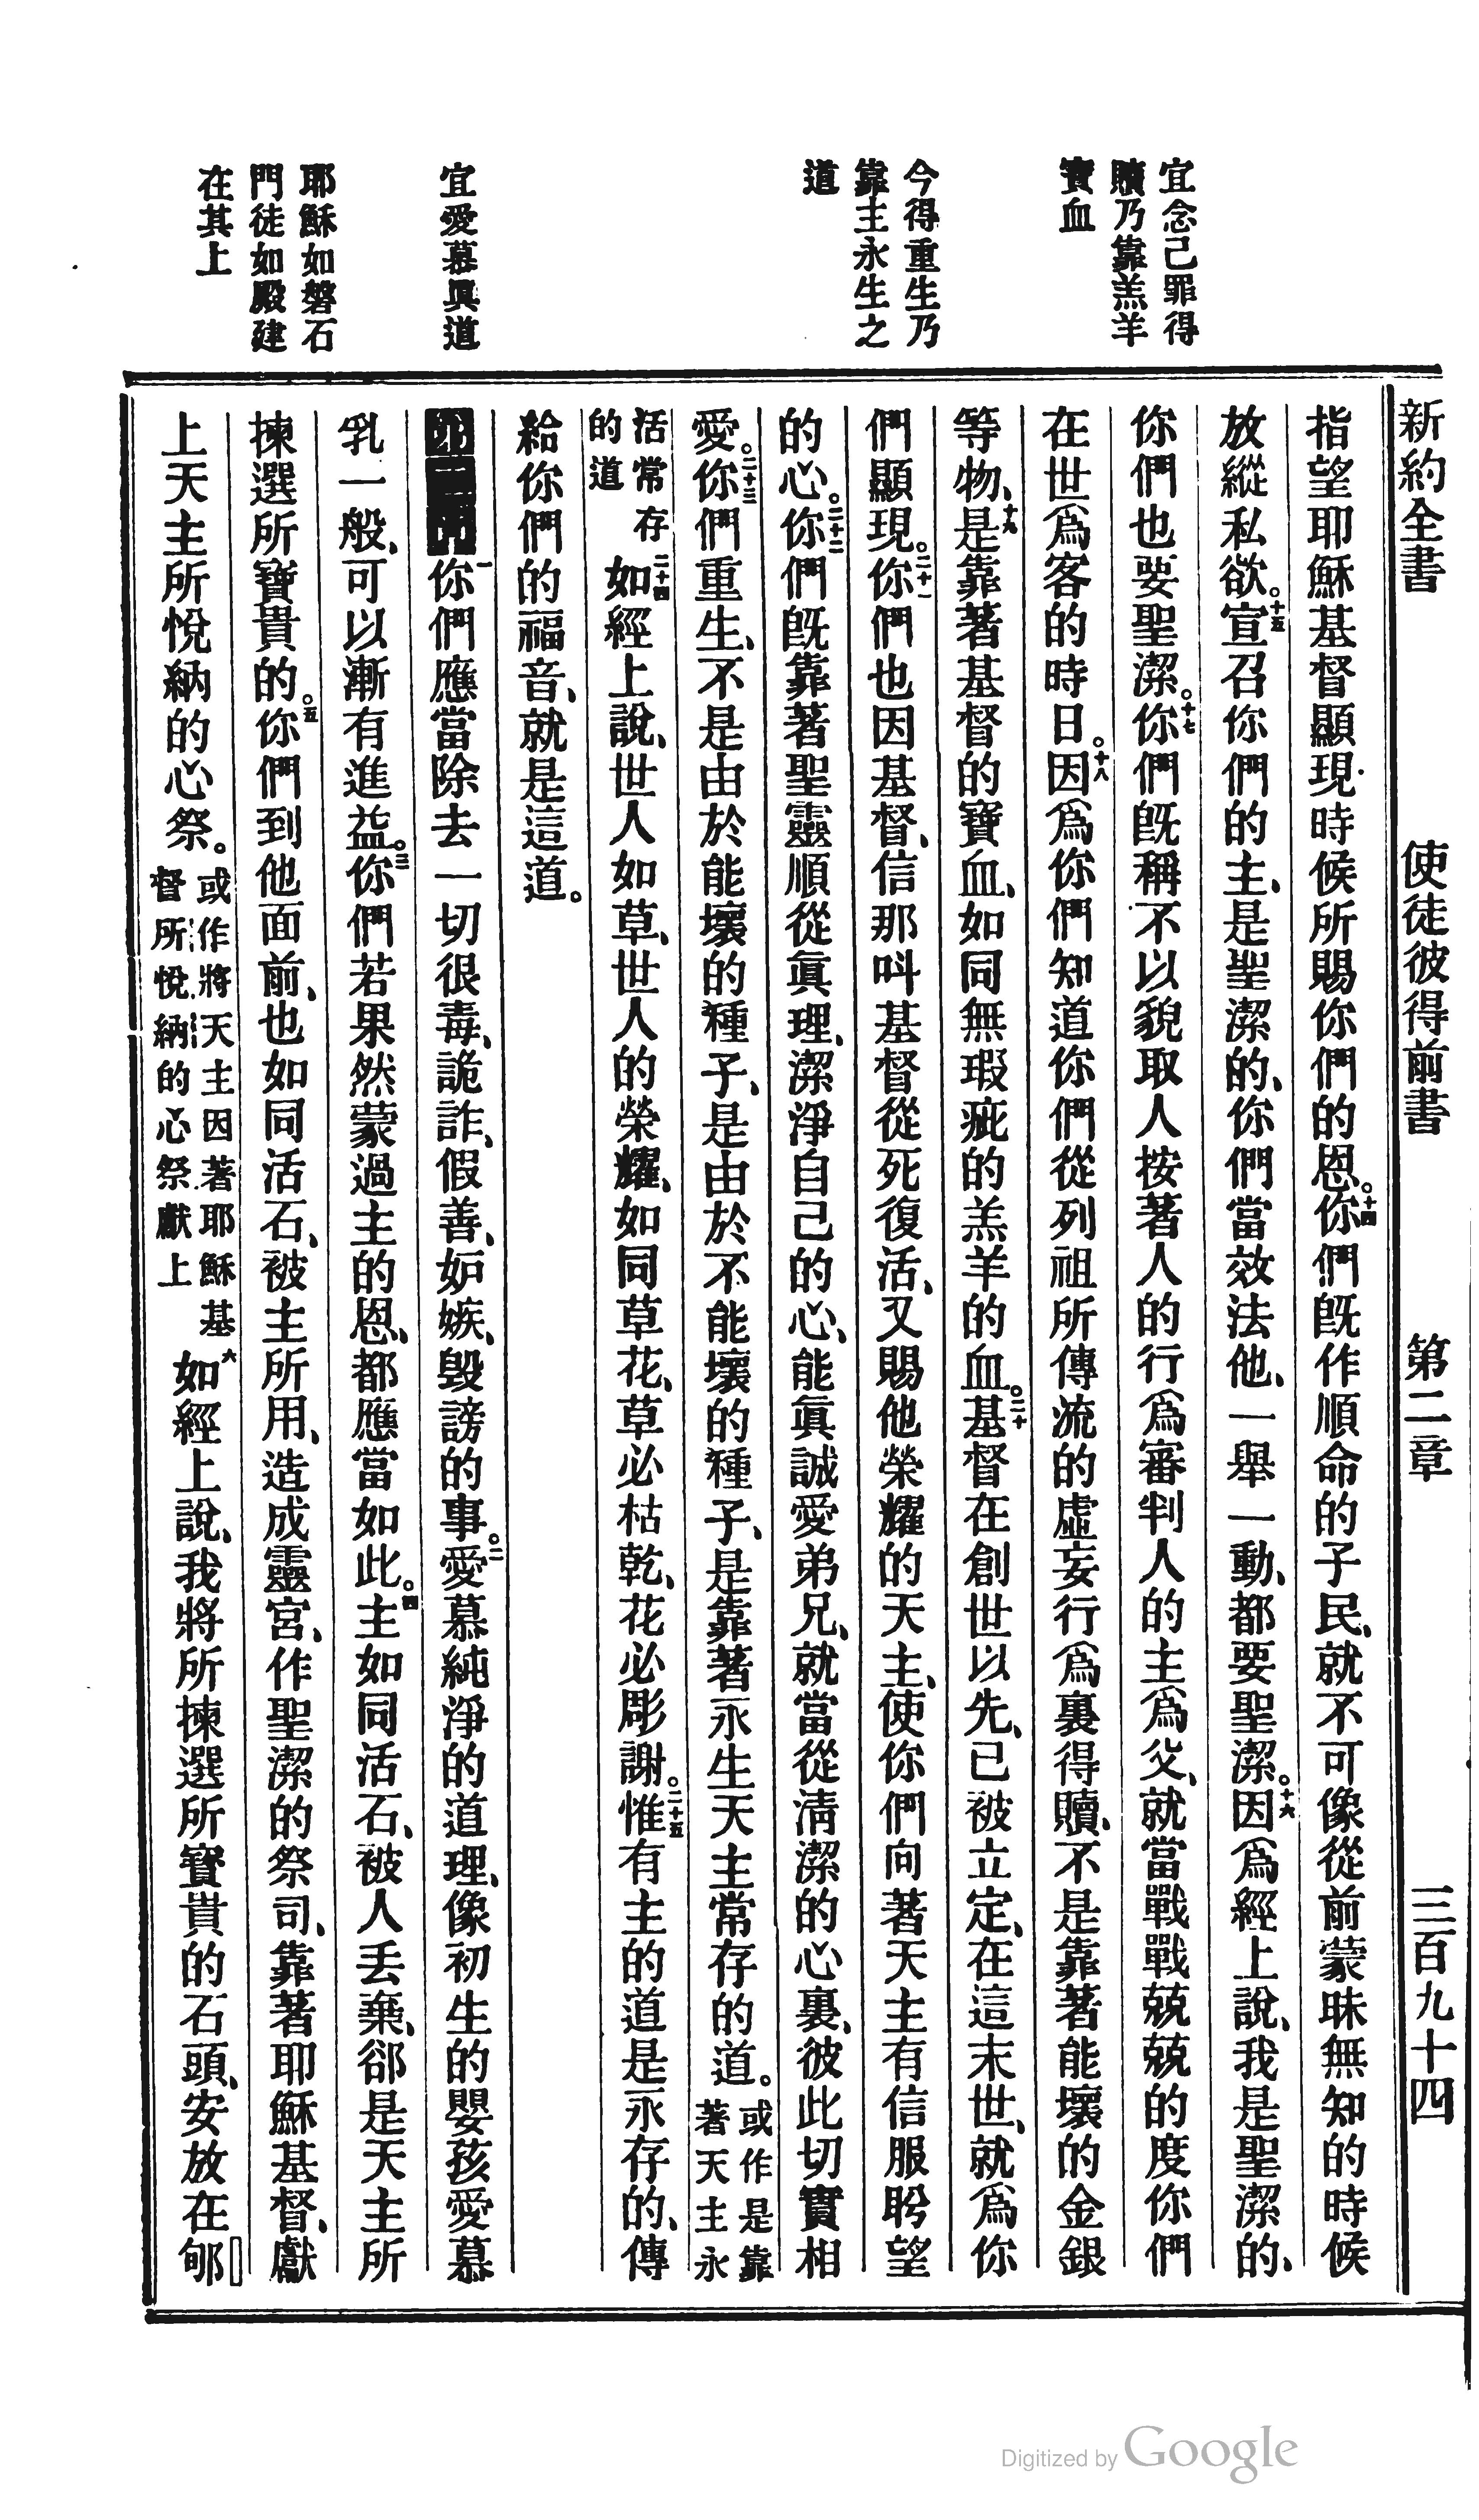 新約全書 使徒彼得前書 第二章 三百九十四
宜念己罪得
贖乃靠羔羊
寶血
今得重生乃
靠主永生之
道
宜愛慕眞道
耶穌如磐石
門徒如殿建
在其上
指望耶穌基督顯現時候所賜你們的恩。十四你們旣作順命的子民、就不可像從前蒙昧無知的時候
放縱私欲。十五宣召你們的主、是聖潔的、你們當效法他、一舉一動、都要聖潔。十六因爲經上說、我是聖潔的、
你們也要聖潔。十七你們旣稱不以貌取人按著人的行爲審判人的主爲父、就當戰戰兢兢的度你們
在世爲客的時日。十八因爲你們知道你們從列祖所傳流的虛妄行爲裏得贖、不是靠著能壞的金銀
等物、十九是靠著基督的寶血、如同無瑕疵的羔羊的血。二十基督在創世以先、已被立定、在這末世、就爲你
們顯現。二十一你們也因基督、信那叫基督從死復活、又賜他榮耀的天主、使你們向著天主有信服盼望
的心。二十二你們旣靠著聖靈順從眞理、潔淨自己的心、能眞誠愛弟兄、就當從淸潔的心裏、彼此切實相
愛。二十三你們重生、不是由於能壞的種子、是由於不能壞的種子、是靠著永生天主常存的道。或作是靠著天主永
活常存的道 二十四如經上說、世人如草、世人的榮耀、如同草花、草必枯乾、花必彫謝。二十五惟有主的道是永存的、傳
給你們的福音、就是這道。
一你們應當除去一切很毒、詭詐、假善、妒嫉、毀謗的事。二愛慕純淨的道理、像初生的嬰孩愛慕
乳一般、可以漸有進益。三你們若果然蒙過主的恩、都應當如此。四主如同活石、被人丢棄、郤是天主所
揀選所寶貴的。五你們到他面前、也如同活石、被主所用、造成靈宮、作聖潔的祭司、靠著耶穌基督、獻
上天主所悅納的心祭。或作將天主因著耶穌基督所悅納的心祭獻上 六如經上說、我將所揀選所寶貴的石頭、安放在郇
Digitized by Google